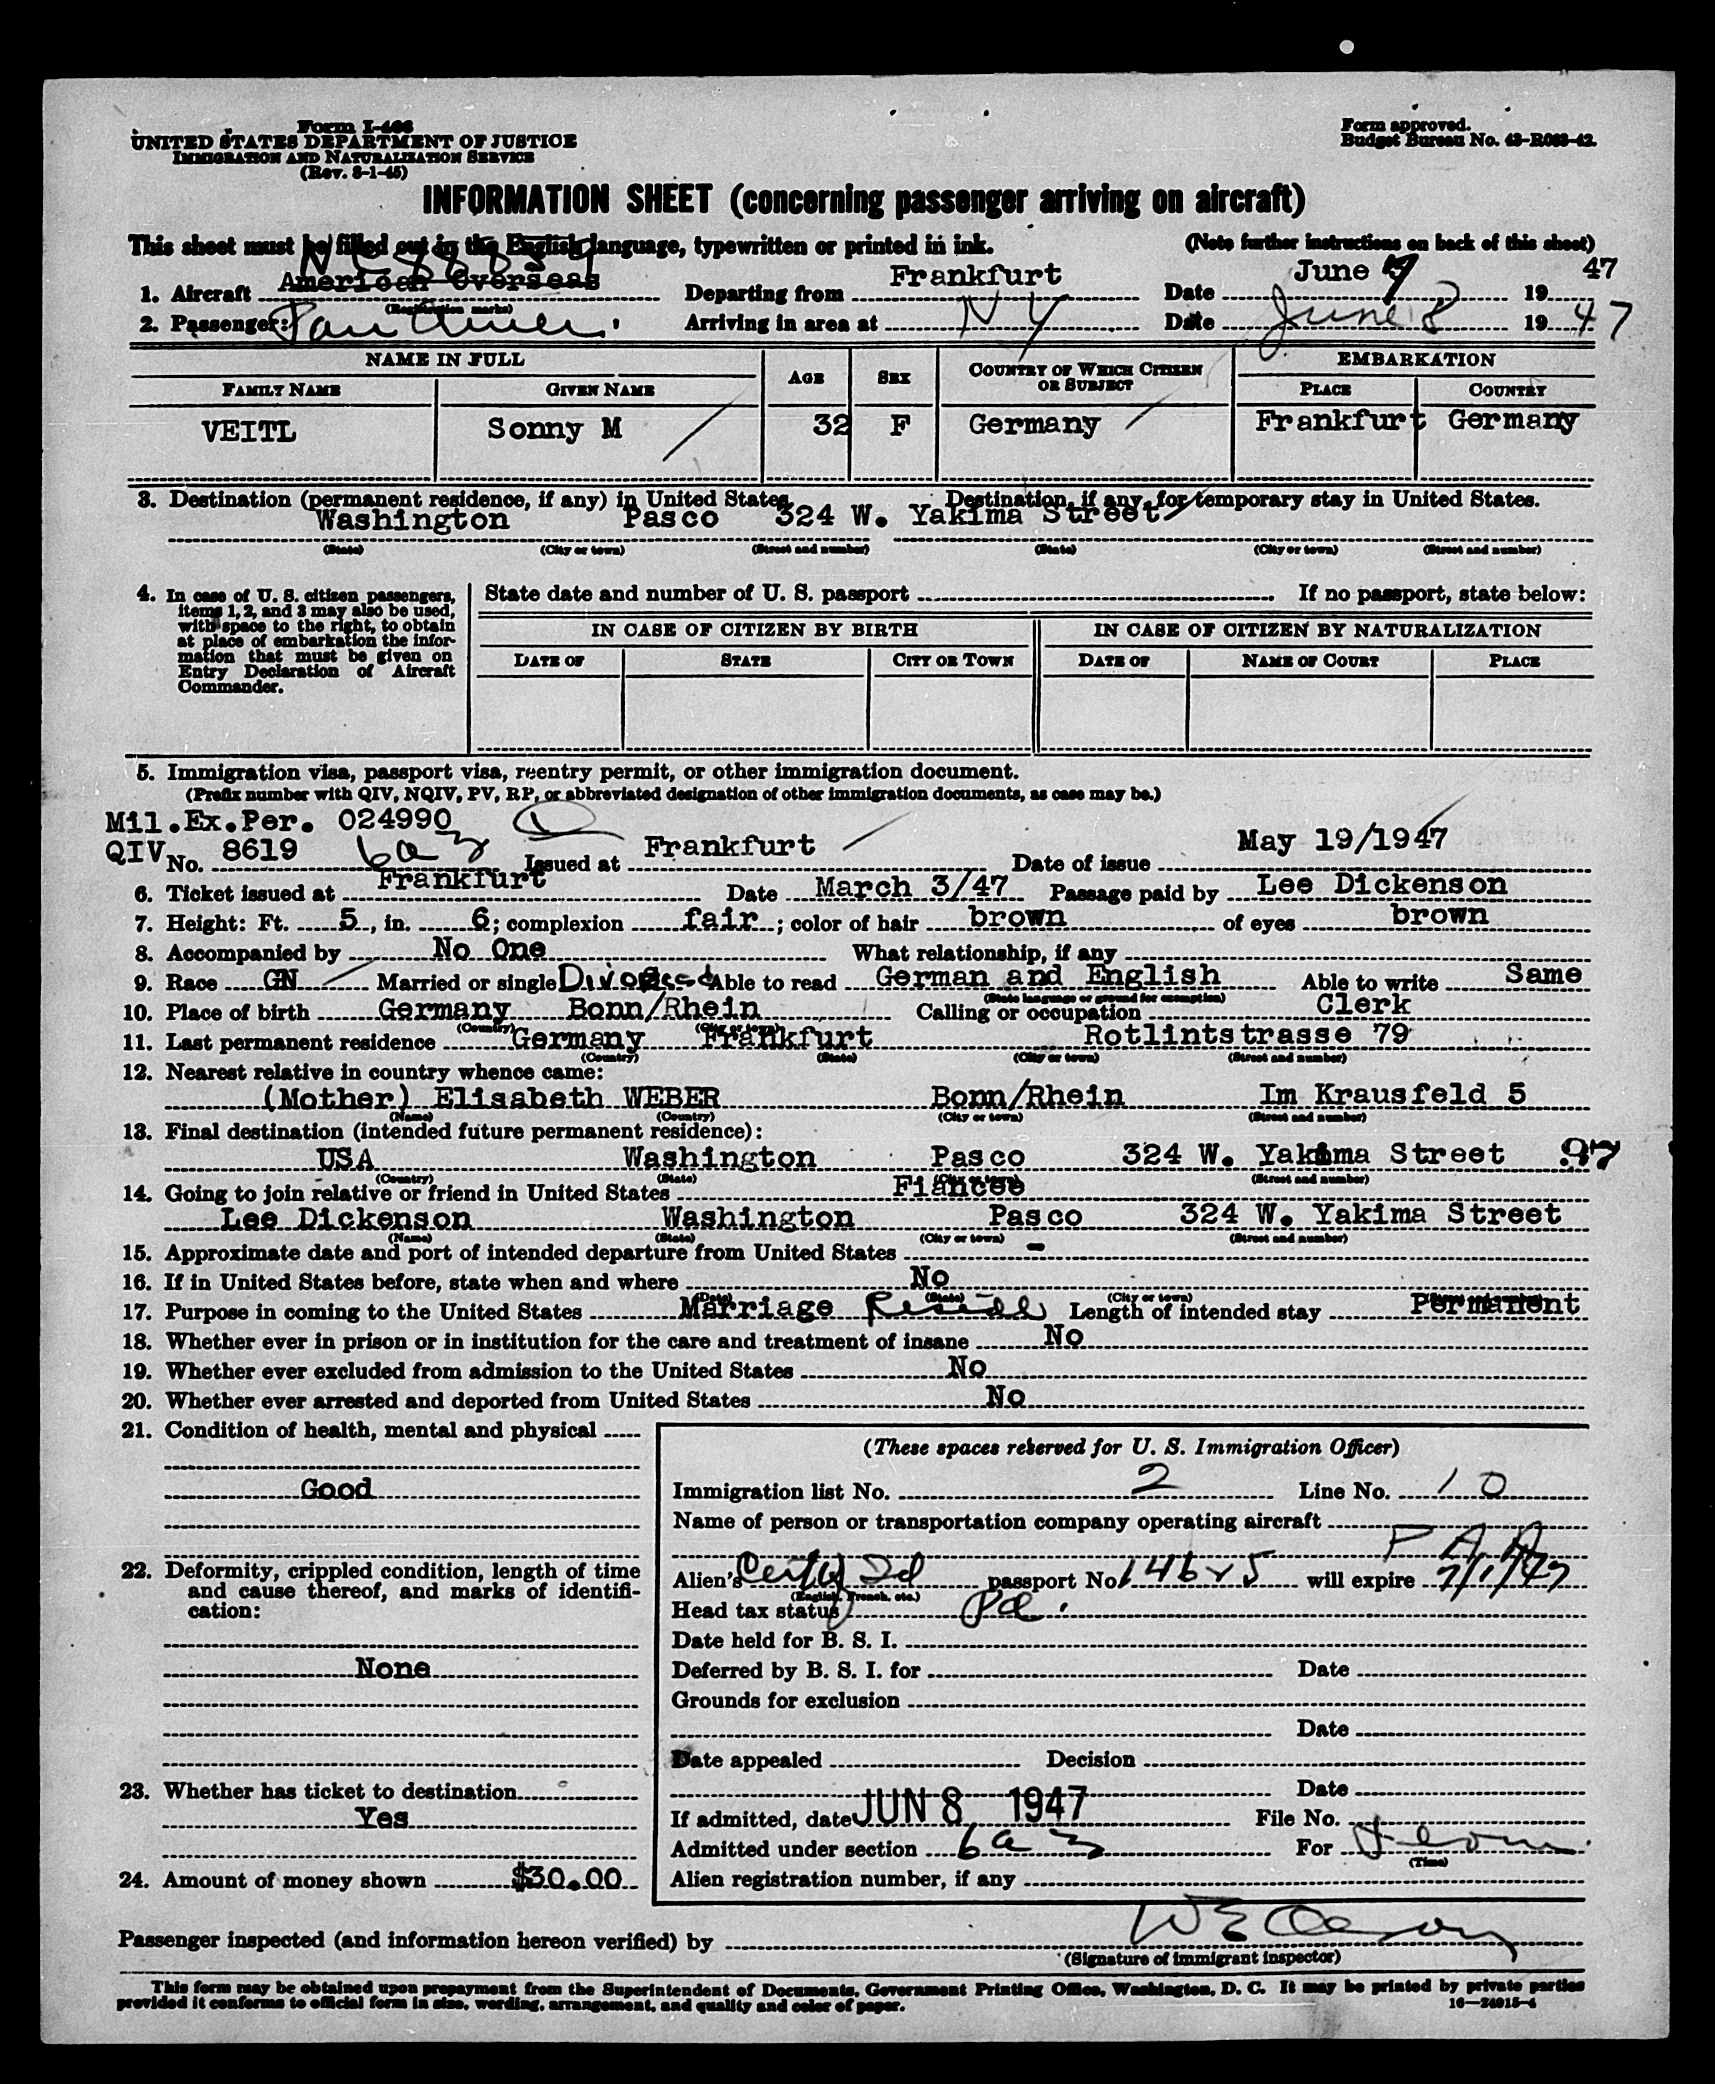 Form I-466
UNITED STATES DEPARTMENT OF JUSTICE
IMMIGRATION AND NATURALIZATION SERVICE
(Rev. 8-1-45)
Form approved.
Budget Bureau No. 43-R083-42.
INFORMATION SHEET (concerning passenger arriving on aircraft)
This sheet must be filled out in the English language, typewritten or printed in ink. (Note further instructions on back of this sheet)
1. Aircraft American Overseas Departing from Frankfurt Date June 7 1947
(Registration marks)
2. Passenger: Pan Amer. Arriving in area at NY Date June 8 1947
NAME IN FULL AGE SEX COUNTRY OF WHICH CITIZEN OR SUBJECT EMBARKATION
FAMILY NAME GIVEN NAME PLACE COUNTRY
VEITL Sonny M 32 F Germany Frankfurt Germany
3. Destination (permanent residence, if any) in United States. Destination, if any, for temporary stay in United States.
Washington Pasco 324 W. Yakima Street
(State) (City or town) (Street and number) (State) (City or town) (Street and number)
4. In case of U. S. citizen passengers, items 1, 2, and 3 may also be used, with space to the right, to obtain at place of embarkation the information that must be given on Entry Declaration of Aircraft Commander.
State date and number of U. S. passport If no passport, state below:
IN CASE OF CITIZEN BY BIRTH IN CASE OF CITIZEN BY NATURALIZATION
DATE OF STATE CITY OR TOWN DATE OF NAME OF COURT PLACE
5. Immigration visa, passport visa, reentry permit, or other immigration document.
(Prefix number with QIV, NQIV, PV, RP, or abbreviated designation of other immigration documents, as case may be.)
Mil.Ex.Per. 024990
QIV No. 8619 6a3 Issued at Frankfurt Date of issue May 19/1947
6. Ticket issued at Frankfurt Date March 3/47 Passage paid by Lee Dickenson
7. Height: Ft. 5, in. 6; complexion fair; color of hair brown of eyes brown
8. Accompanied by No One What relationship, if any
9. Race GN Married or single Divorced Able to read German and English Able to write Same
(State language or ground for exemption)
10. Place of birth Germany Bonn/Rhein Calling or occupation Clerk
(Country) (City or town)
11. Last permanent residence Germany Frankfurt Rotlintstrasse 79
(Country) (State) (City or town) (Street and number)
12. Nearest relative in country whence came:
(Mother) Elisabeth WEBER Bonn/Rhein Im Krausfeld 5
(Name) (Country) (City or town) (Street and number)
13. Final destination (intended future permanent residence):
USA Washington Pasco 324 W. Yakima Street .97
(Country) (State) (City or town) (Street and number)
14. Going to join relative or friend in United States Fiancee
Lee Dickenson Washington Pasco 324 W. Yakima Street
(Name) (State) (City or town) (Street and number)
15. Approximate date and port of intended departure from United States -
16. If in United States before, state when and where No
(Date) (State) (City or town) (Street and number)
17. Purpose in coming to the United States Marriage Reside Length of intended stay Permanent
18. Whether ever in prison or in institution for the care and treatment of insane No
19. Whether ever excluded from admission to the United States No
20. Whether ever arrested and deported from United States No
21. Condition of health, mental and physical
Good
22. Deformity, crippled condition, length of time and cause thereof, and marks of identification:
None
23. Whether has ticket to destination
Yes
24. Amount of money shown $30.00
(These spaces reserved for U. S. Immigration Officer)
Immigration list No. 2 Line No. 10
Name of person or transportation company operating aircraft
P A A
Alien's passport No. will expire 7/1/47
(English, French, etc.)
Head tax status Pd.
Date held for B. S. I.
Deferred by B. S. I. for Date
Grounds for exclusion
Date
Date appealed Decision
Date
If admitted, date JUN 8 1947 File No.
Admitted under section 6a3 For
(Time)
Alien registration number, if any
Passenger inspected (and information hereon verified) by
(Signature of immigrant inspector)
This form may be obtained upon prepayment from the Superintendent of Documents, Government Printing Office, Washington, D. C. It may be printed by private parties
provided it conforms to official form in size, wording, arrangement, and quality and color of paper.
16—24915-4